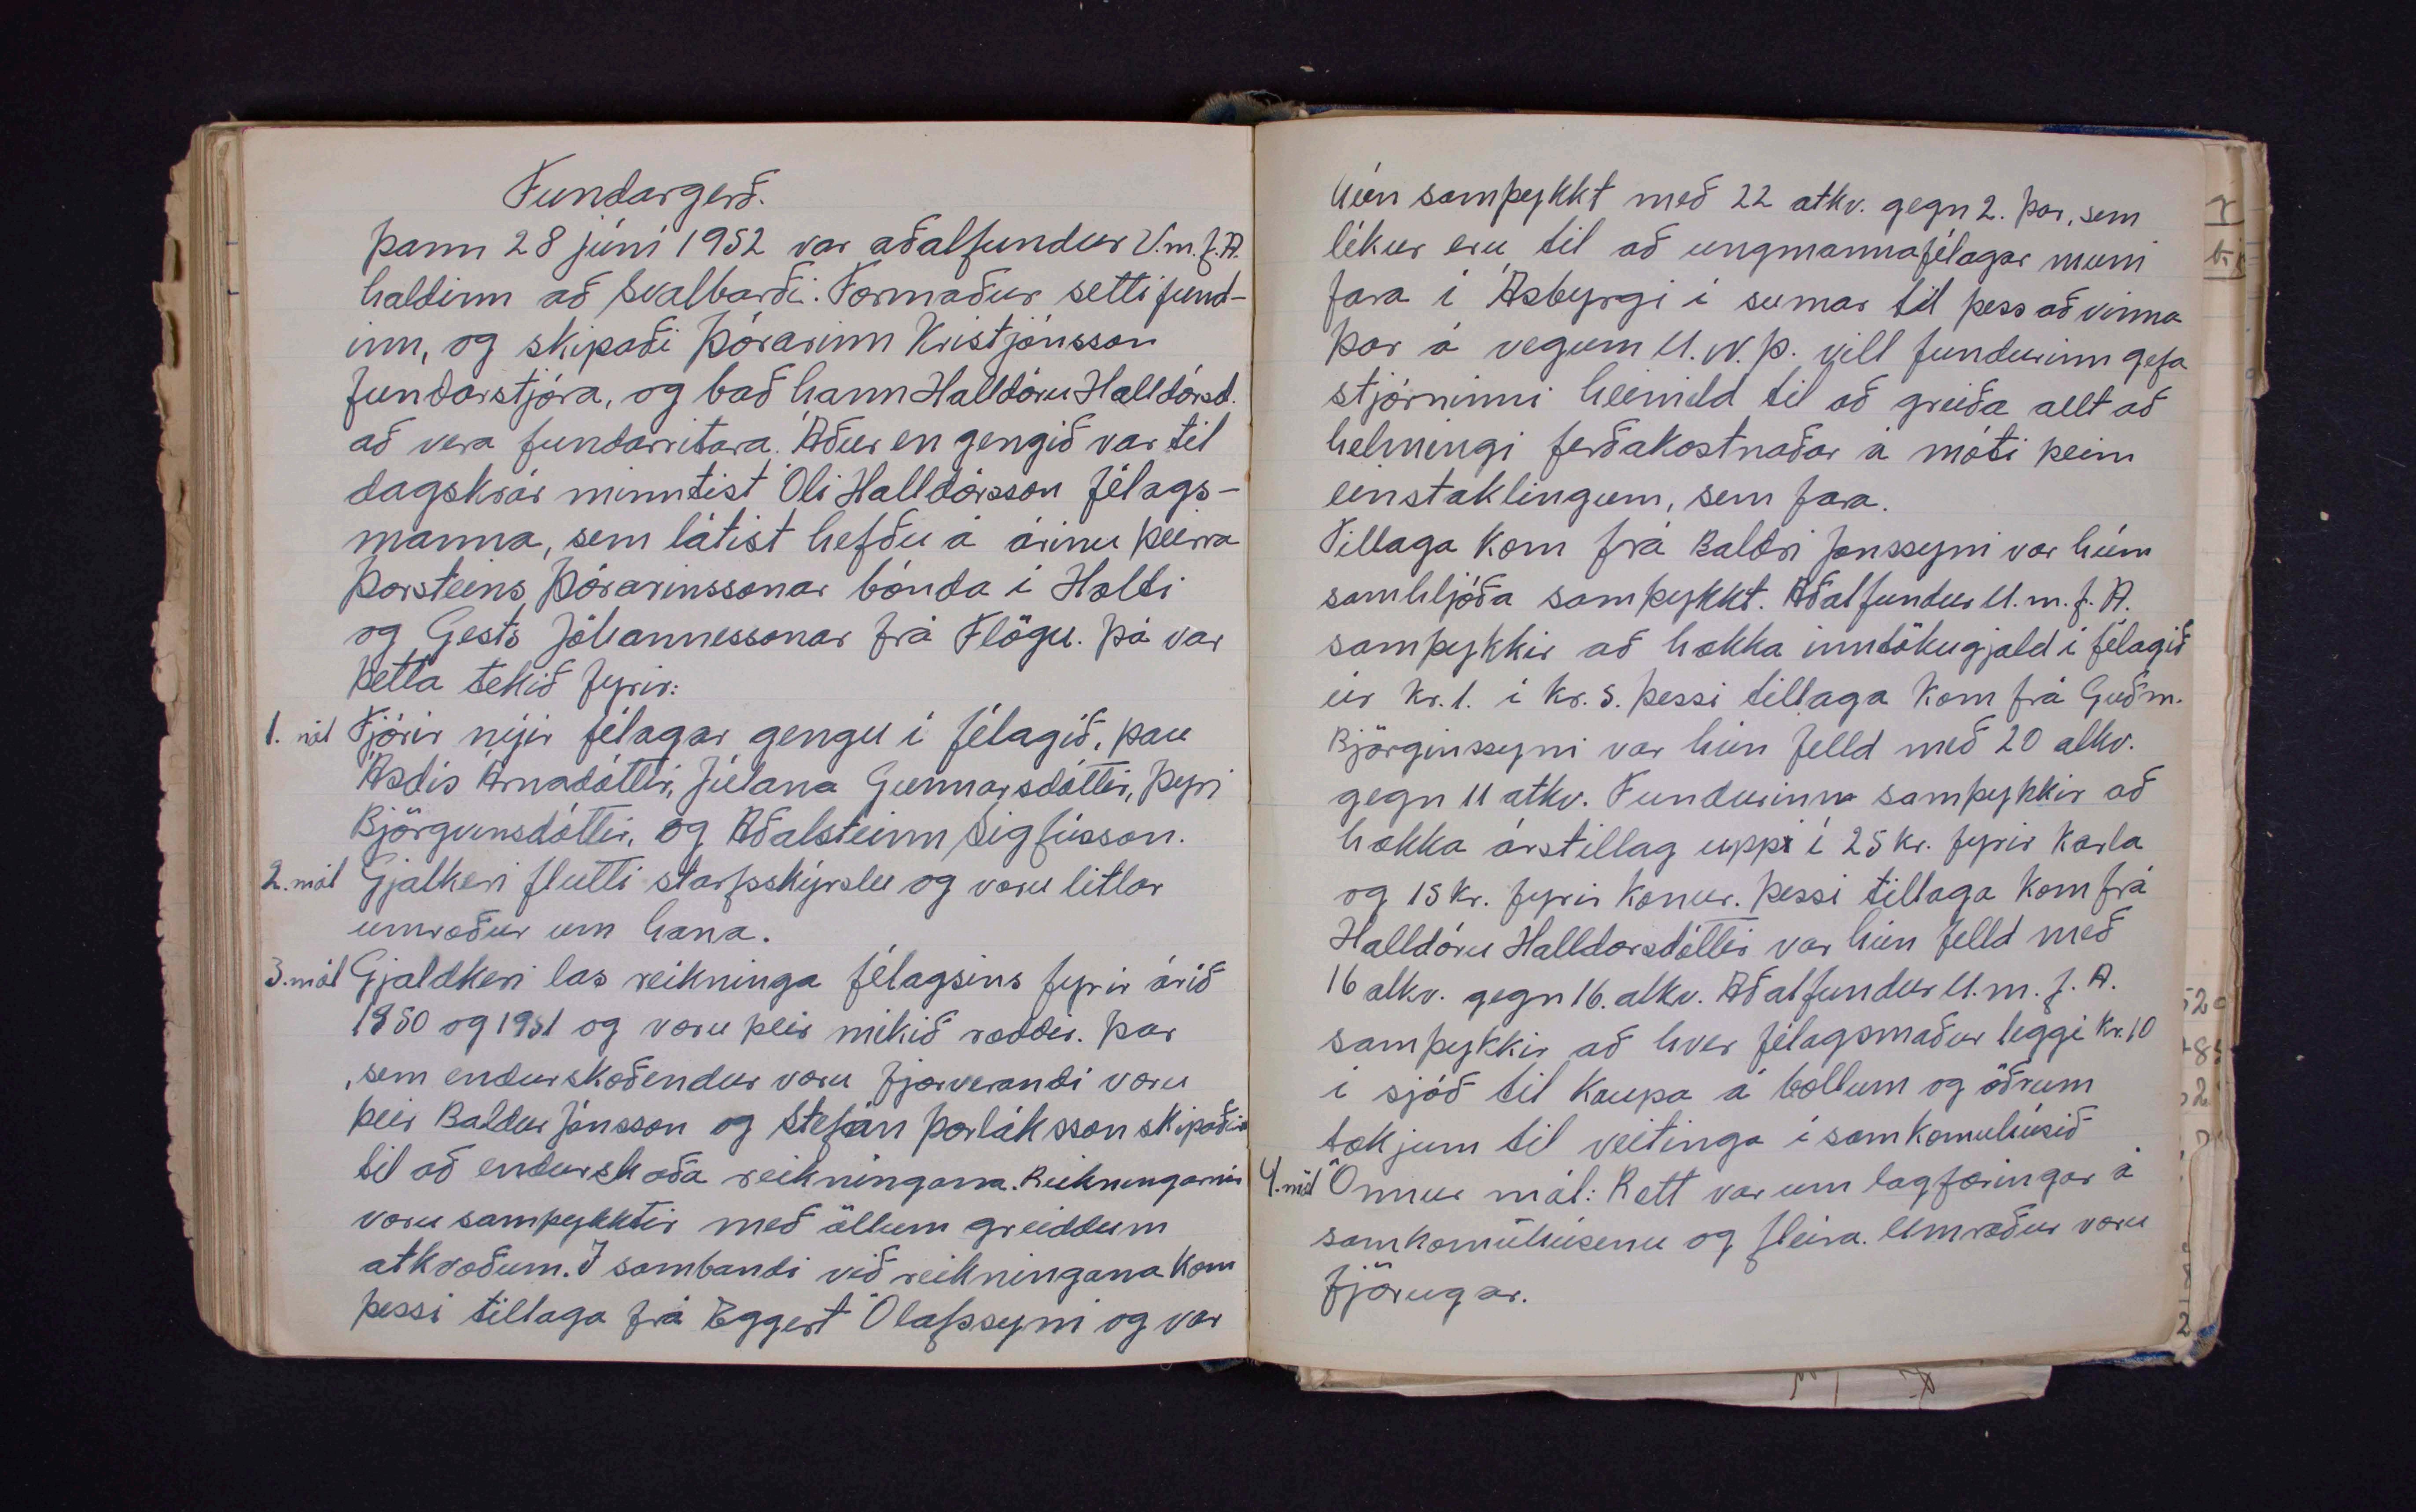 Fundargerð.
Þann 28 júní 1952 var aðalfundur U.m.f.A.
haldinn að Svalbarði. Formaður setti fund-
inn, og skipaði Þórarinn Kristjánsson
fundarstjóra, og bað hann Halldóru Halldórsd.
að vera fundarritara. Áður en gengið var til
dagskrár minntist Óli Halldórsson félags-
manna, sem látist hefðu á árinu þeirra
Þorsteins Þórarinssonar bónda í Holti
og Gests Jóhannessonar frá Flögu. Þá var
þetta tekið fyrir:
1. mál Fjórir nýir félagar gengu í félagið, þau
Ásdís Árnadóttir, Júlana Gunnarsdóttir, Þyri
Björgvinsdóttir, og Aðalsteinn Sigfússon.
2. mál Gjalkeri flutti starfsskýrslu og voru litlar
umræður um hana.
3. mál Gjaldkeri las reikninga félagsins fyrir árið
1950 og 1951 og voru þeir mikið ræddir. Þar
, sem endurskoðendur voru fjærverandi voru
þeir Baldur Jónsson og Stefán Þorláksson skipaðir
til að endurskoða reikningana. Reikningarnir
voru samþykktir með öllum greiddum
atkvæðum. Í sambandi við reikningana kom
þessi tillaga frá Eggert Ólafssyni og var
hún samþykkt með 22 atkv. gegn 2. Þar, sem
líkur eru til að ungmannafélagar muni
fara í Ásbyrgi í sumar til þess að vinna
þar á vegum U.N.Þ. vill fundurinn gefa
stjórninni heimild til að greiða allt að
helmingi ferðakostnaðar á móti þeim
einstaklingum, sem fara.
Tillaga kom frá Baldri Jonssyni var hún
samhljóða samþykkt. Aðalfundur U.m.f.A.
samþykkir að hækka inntökugjald í félagið
úr kr. 1. í kr. 5. Þessi tillaga kom frá Guðm.
Björginssyni var hún felld með 20 atkv.
gegn 11 atkv. Fundurinn samþykkir að
hækka árstillag uppí í 25 kr. fyrir karla
og 15 kr. fyrir konur. Þessi tillaga kom frá
Halldóru Halldorsdóttir var hún felld með
16 atkv. gegn 16. atkv. Aðalfundur U.m.f.A.
samþykkir að hver félagsmaður leggi kr. 10
í sjóð til kaupa á bollum og öðrum
tækjum til veitinga í samkomuhúsið
4. mál Önnur mál: Rætt var um lagfæringar á
samkomuhúsinu og fleira. Umræður voru
fjörugar.